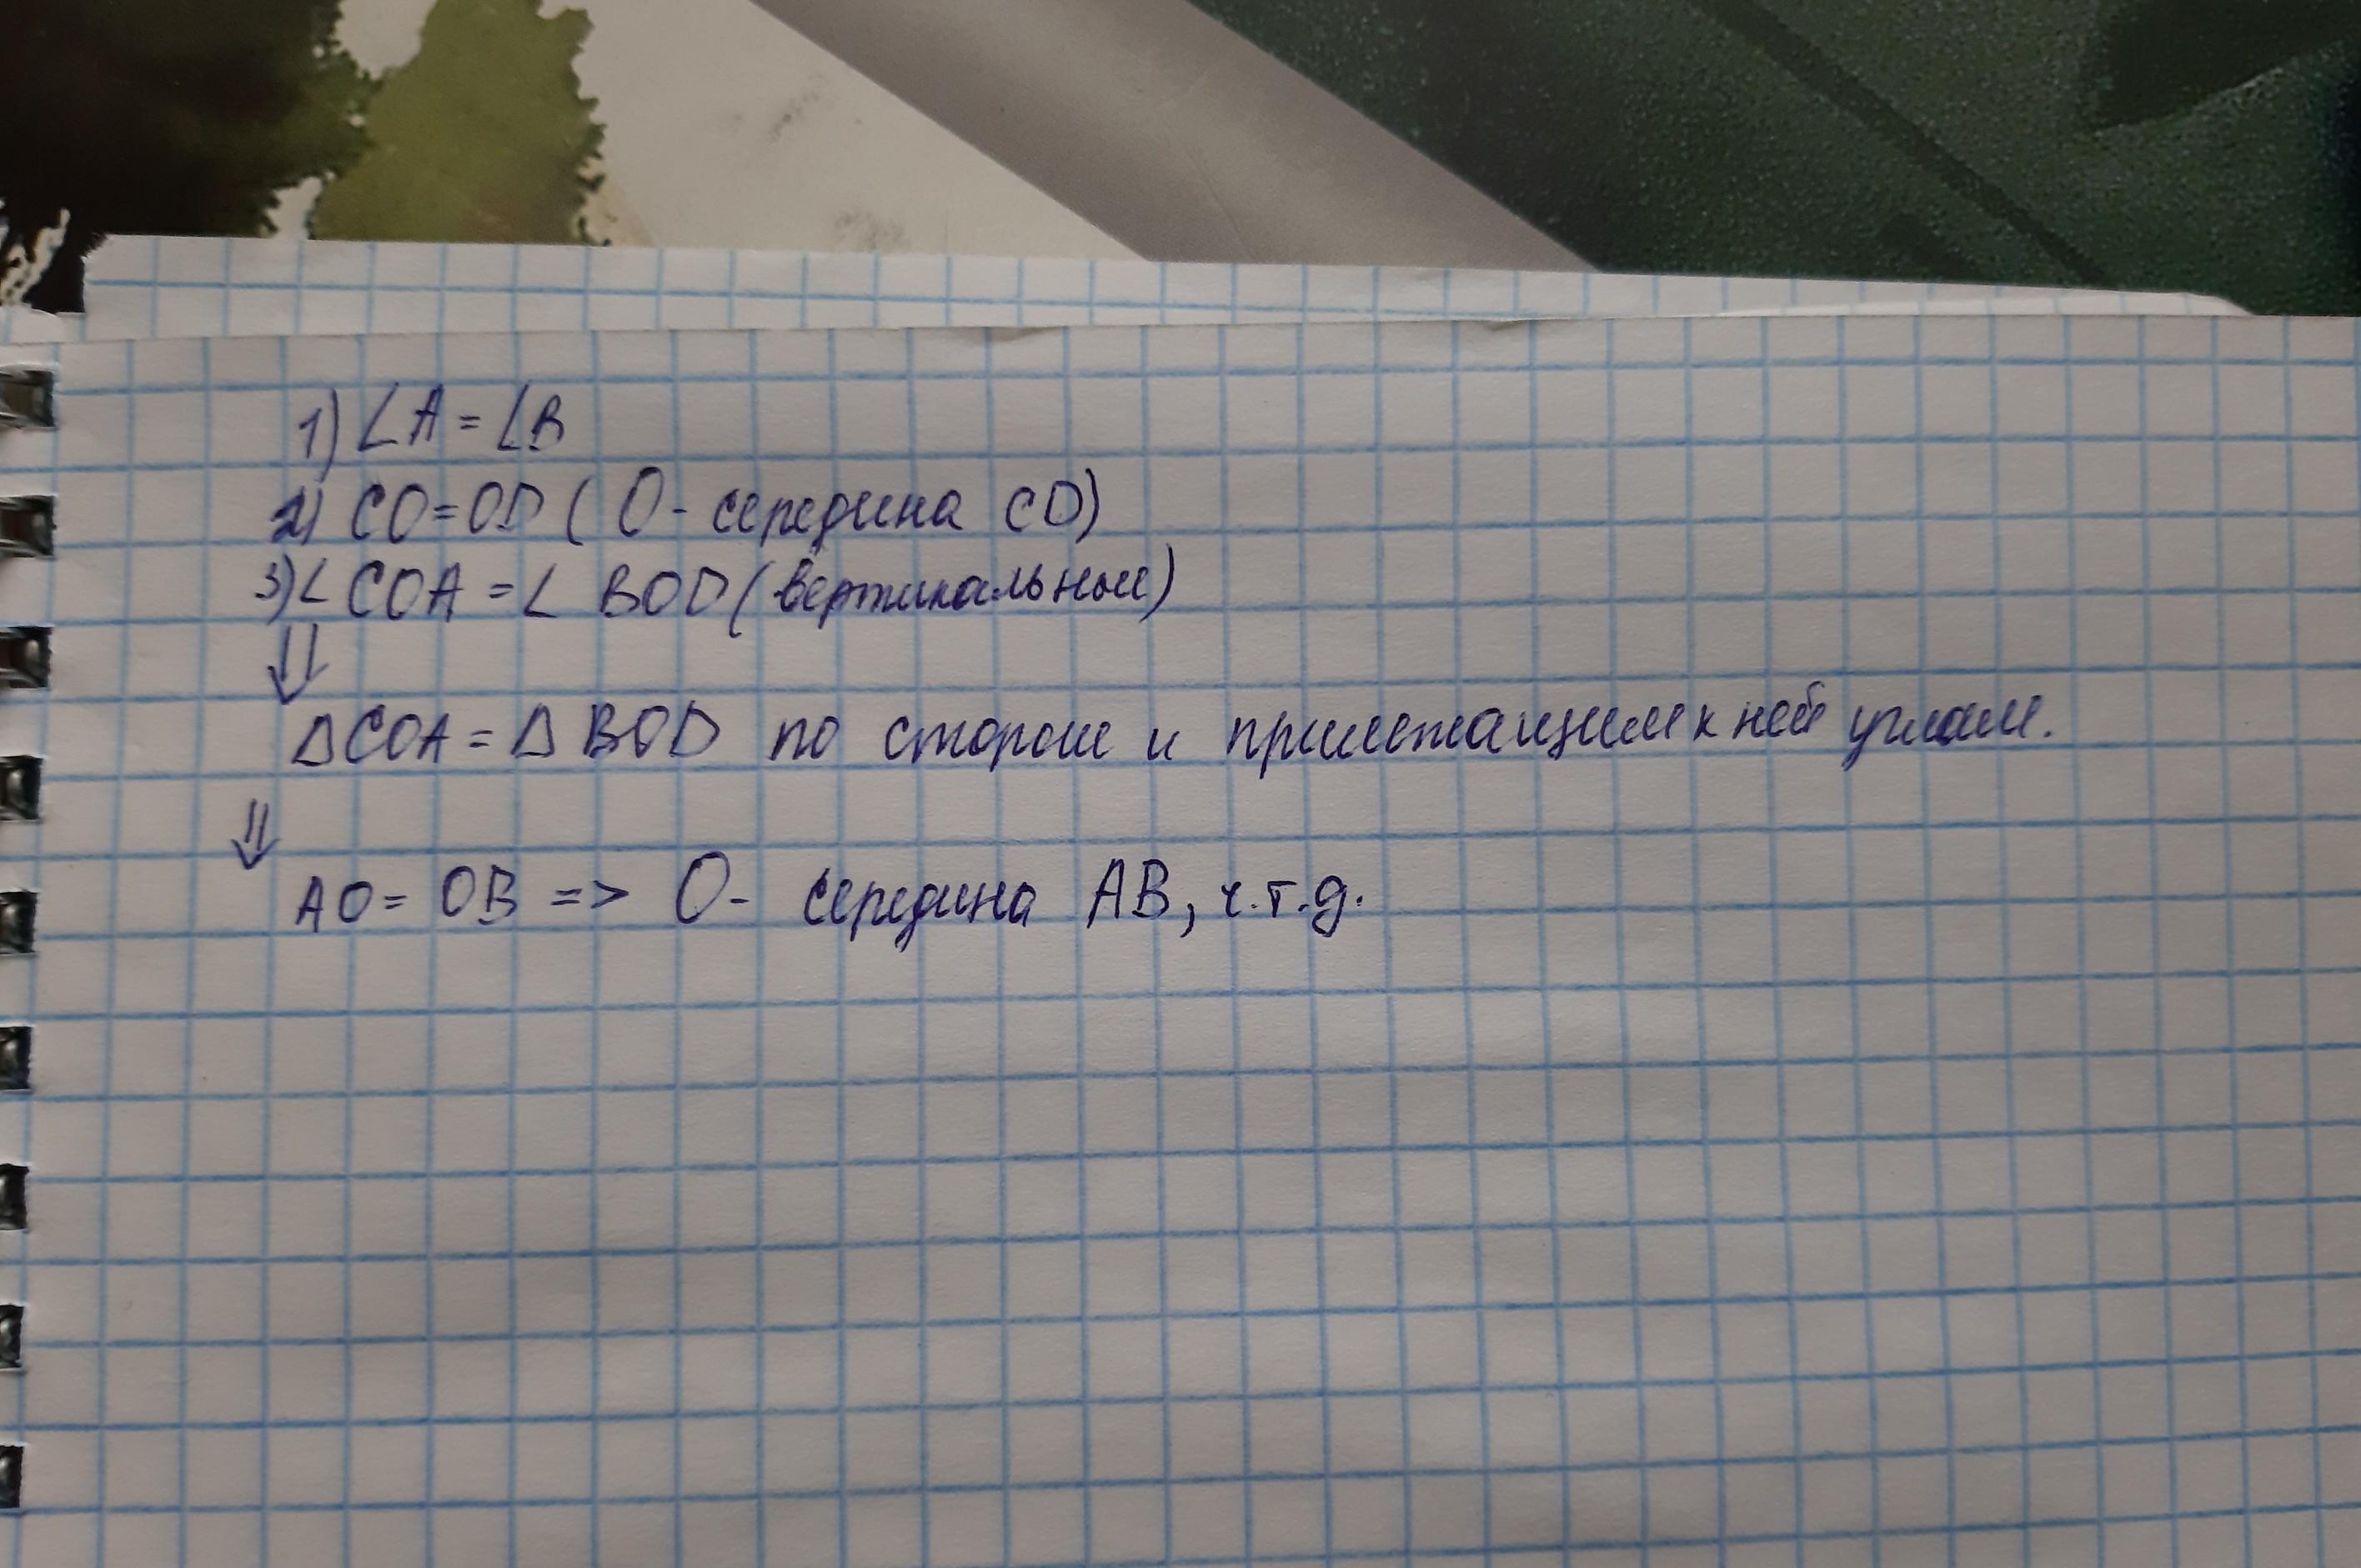 1) ∠A = ∠B
2) CO = OD ( O - середина CD)
3) ∠ COA = ∠ BOD (вертикальные)
⇓
△COA = △ BOD по стороне и прилежащим к ней углам.
⇓
AO = OB => O - середина AB, ч.т.д.